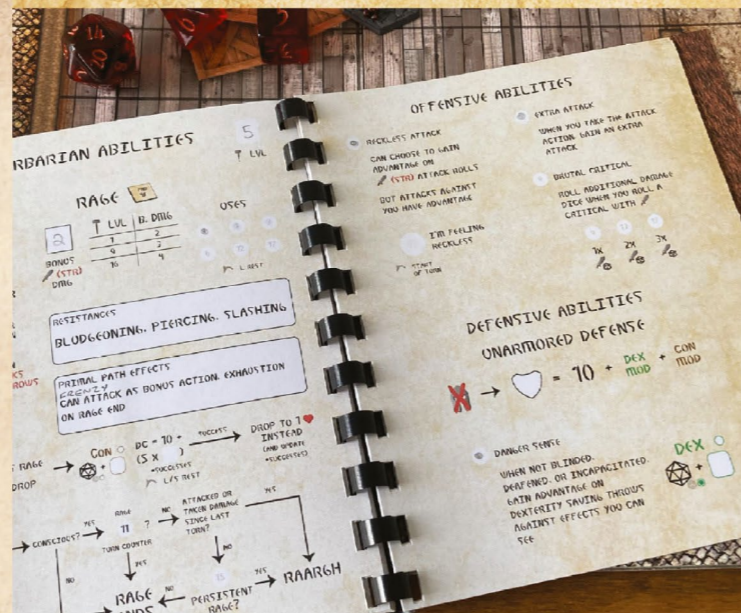 RBARIAN ABILITIES
5
LVL
RAGE
2
BONUS
(STR)
DMG
LVL B. DMG
1 2
9 3
16 4
USES
L. REST
RESISTANCES
BLUDGEONING, PIERCING, SLASHING
PRIMAL PATH EFFECTS
FRENZY
CAN ATTACK AS BONUS ACTION. EXHAUSTION
ON RAGE END
ROWS
RAGE
DROP
CON
+
DC = 10 +
(5 X )
*SUCCESSES
L/S REST
SUCCESS
DROP TO 1
INSTEAD
(AND UPDATE
*SUCCESSES)
CONSCIOUS?
YES
RAGE
11 ?
TURN COUNTER
NO
ATTACKED OR
TAKEN DAMAGE
SINCE LAST
TURN?
YES
NO
YES
NO
RAGE
NO
15
PERSISTENT
RAGE?
YES
RAARGH
OFFENSIVE ABILITIES
RECKLESS ATTACK
CAN CHOOSE TO GAIN
ADVANTAGE ON
(STR) ATTACK ROLLS
BUT ATTACKS AGAINST
YOU HAVE ADVANTAGE
I'M FEELING
RECKLESS
START
OF TURN
EXTRA ATTACK
WHEN YOU TAKE THE ATTACK
ACTION, GAIN AN EXTRA
ATTACK
BRUTAL CRITICAL
ROLL ADDITIONAL DAMAGE
DICE WHEN YOU ROLL A
CRITICAL WITH
1X 2X 3X
DEFENSIVE ABILITIES
UNARMORED DEFENSE
= 10 + DEX MOD + CON MOD
DANGER SENSE
WHEN NOT BLINDED,
DEAFENED, OR INCAPACITATED,
GAIN ADVANTAGE ON
DEXTERITY SAVING THROWS
AGAINST EFFECTS YOU CAN
SEE
DEX
+